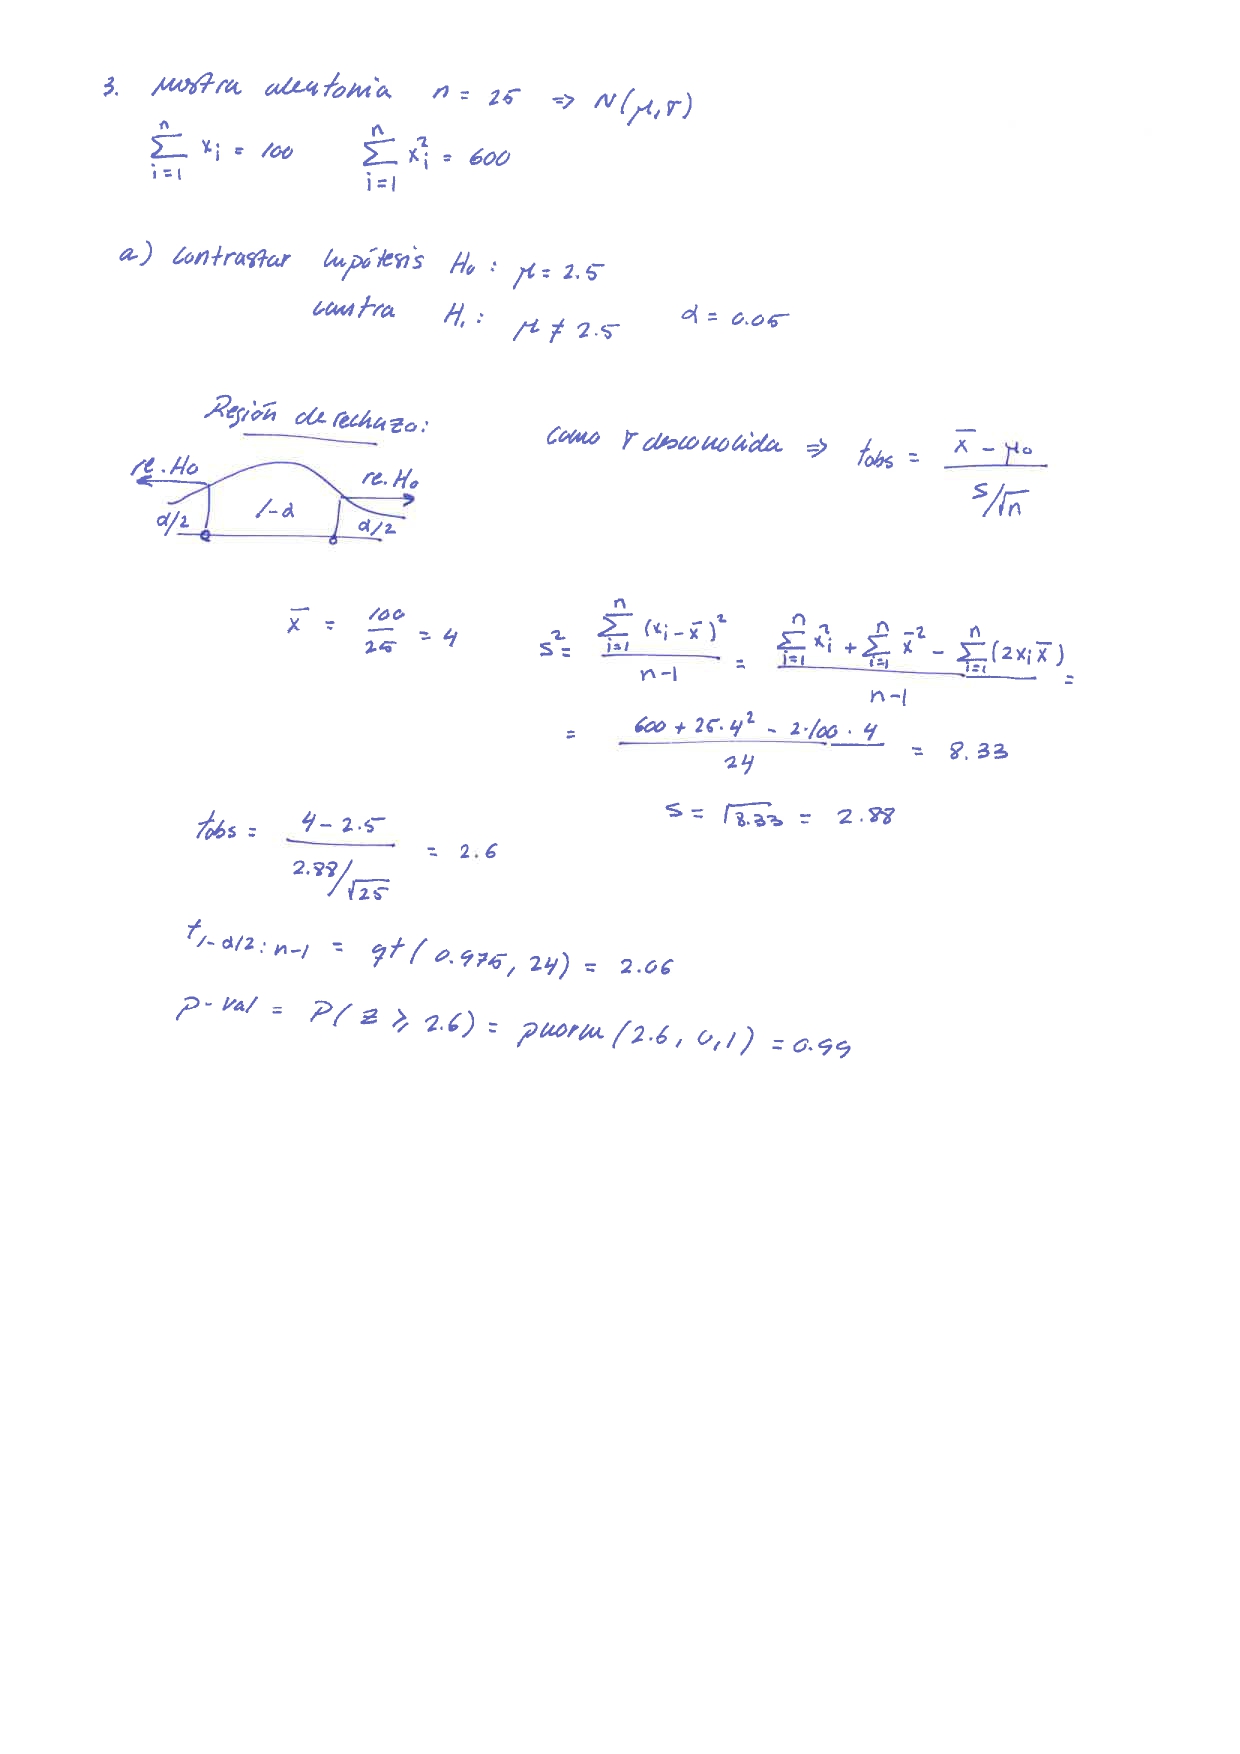 3. mostra aleatoria n = 25 => N(μ, σ)
n ∑ i=1 xi = 100 n ∑ i=1 xi² = 600
a) contrastar hipótesis H0 : μ = 2.5
contra H1 : μ ≠ 2.5 α = 0.05
Región de rechazo:
como σ desconocida => tobs = (x̄ - μ0) / (s/√n)
re. H0 re. H0
α/2 1-α α/2
x̄ = 100/25 = 4 s² = ∑ i=1 n (xi - x̄)² / (n-1) = (∑ i=1 n xi² + ∑ i=1 n x̄² - ∑ i=1 n (2xi x̄)) / (n-1) =
= (600 + 25·4² - 2·100·4) / 24 = 8.33
s = √8.33 = 2.88
tobs = (4 - 2.5) / (2.88/√25) = 2.6
t1-α/2 : n-1 = qt(0.975, 24) = 2.06
p-val = P(Z ≥ 2.6) = pnorm(2.6, 0, 1) = 0.99